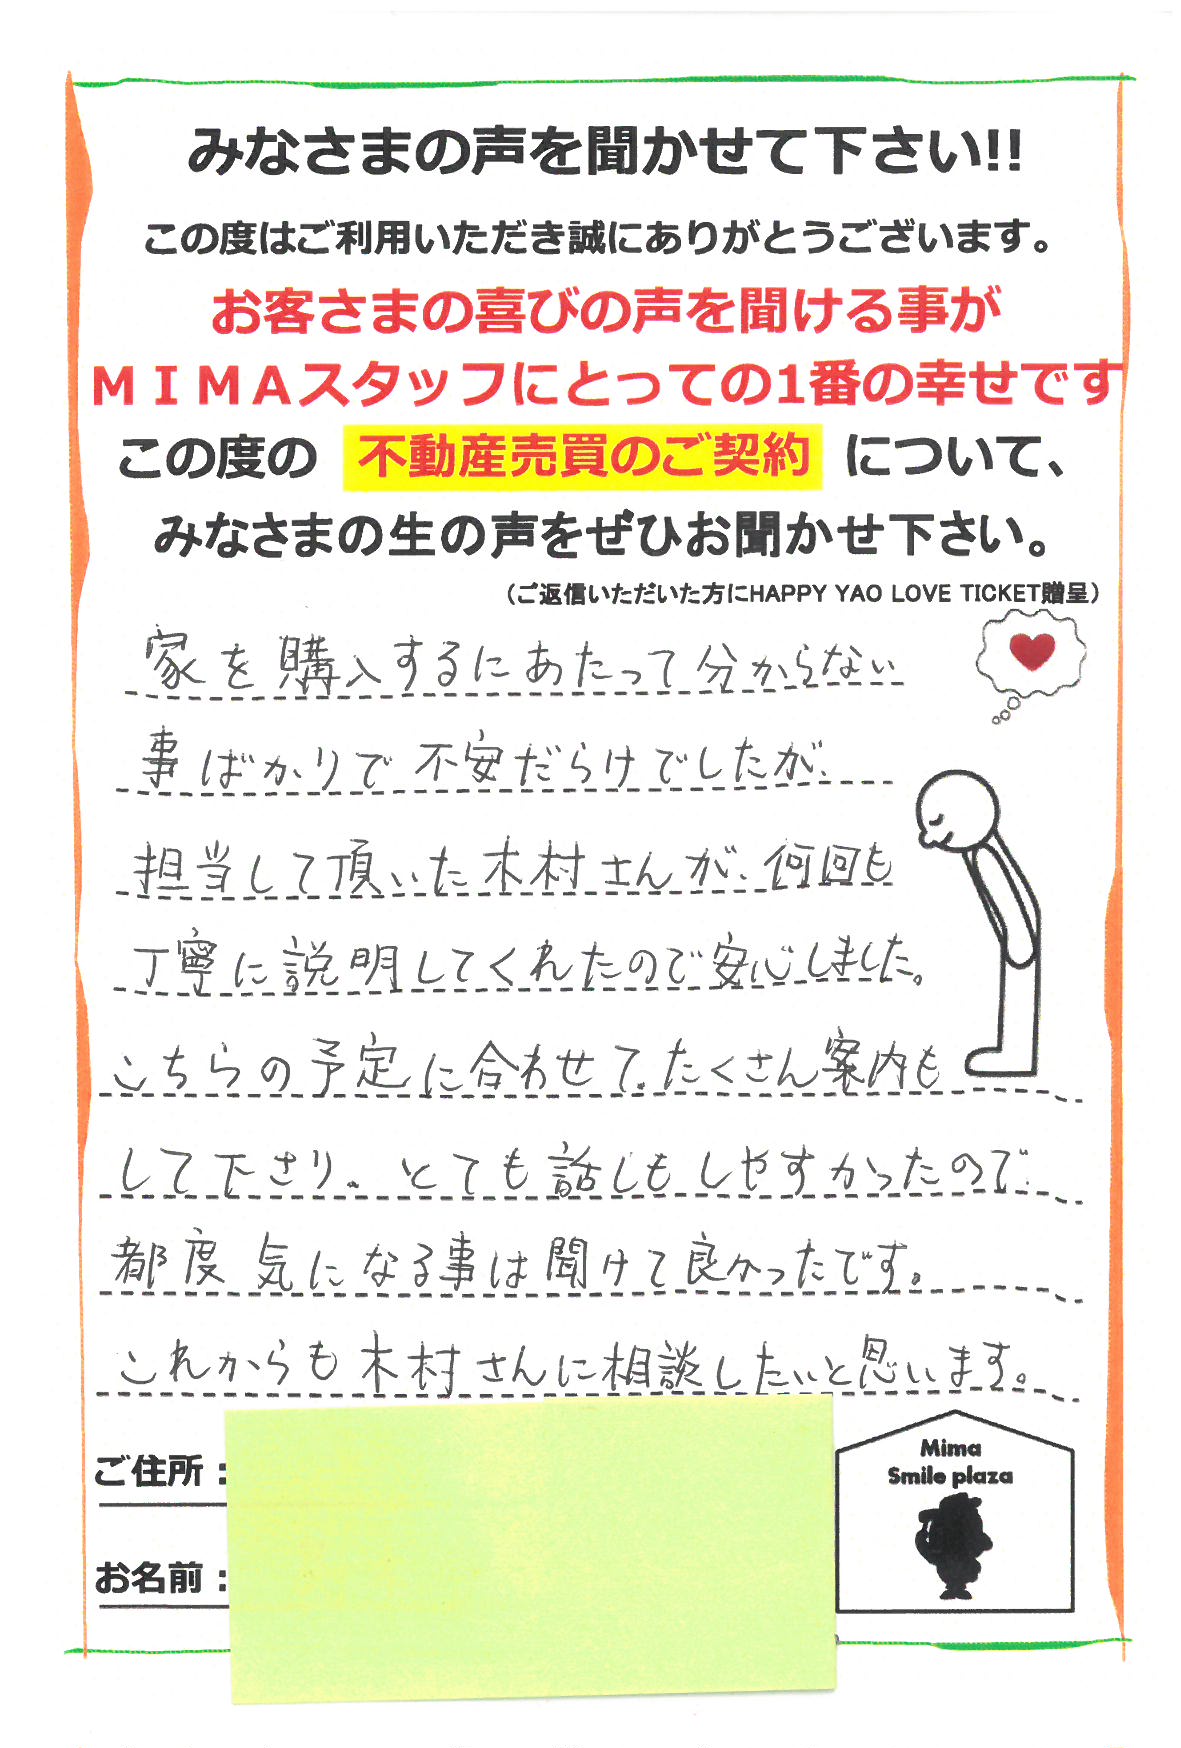 みなさまの声を聞かせて下さい!!
この度はご利用いただき誠にありがとうございます。
お客さまの喜びの声を聞ける事が
ＭＩＭＡスタッフにとっての1番の幸せです
この度の 不動産売買のご契約 について、
みなさまの生の声をぜひお聞かせ下さい。
（ご返信いただいた方にHAPPY YAO LOVE TICKET贈呈）
家を購入するにあたって分からない
事ばかりで不安だらけでしたが、
担当して頂いた木村さんが、何回も
丁寧に説明してくれたので安心しました。
こちらの予定に合わせて、たくさん案内も
して下さり、とても話しもしやすかったので
都度気になる事は聞けて良かったです。
これからも木村さんに相談したいと思います。
Mima
Smile plaza
ご住所：
お名前：